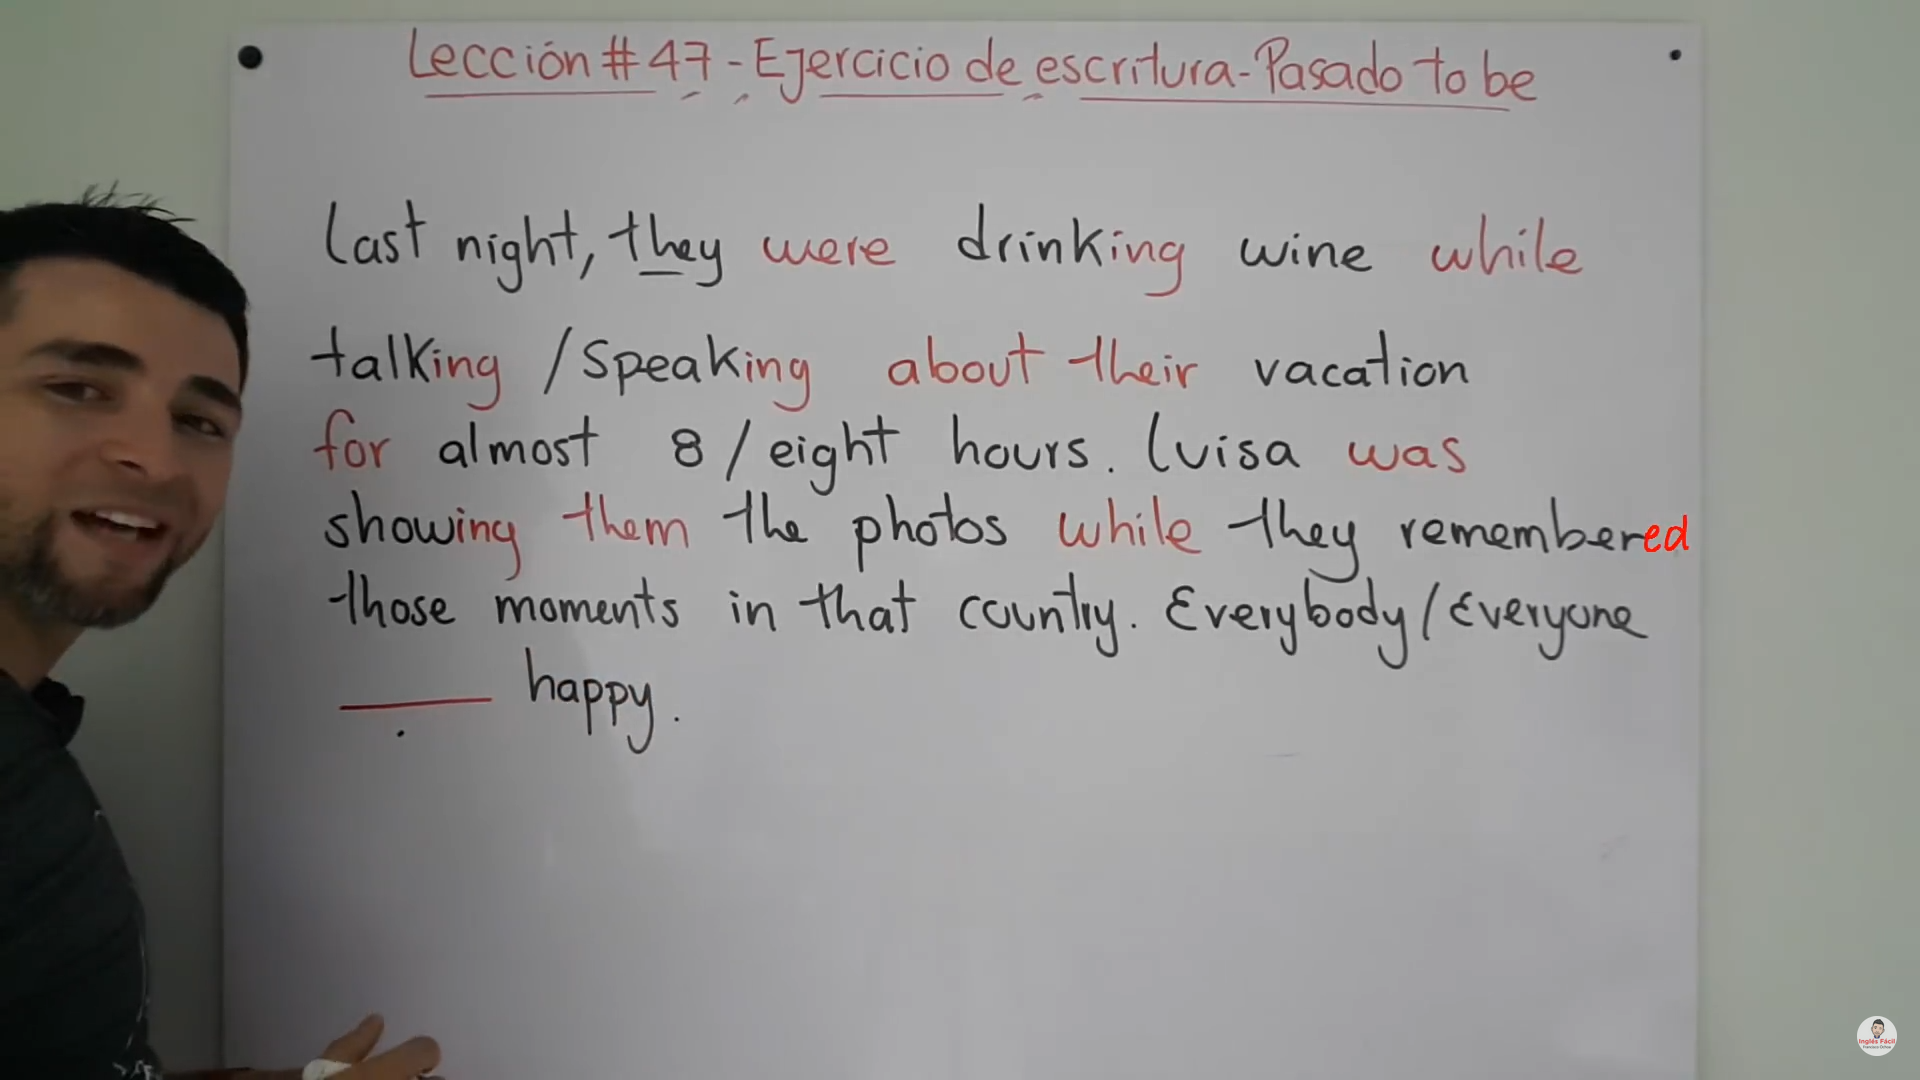 Lección #47 - Ejercicio de escritura - Pasado to be
Last night, they were drinking wine while
talking / speaking about their vacation
for almost 8 / eight hours. Luisa was
showing them the photos while they remembered
those moments in that country. Everybody / Everyone
_____ happy.
Inglés Fácil
Francisco Ochoa